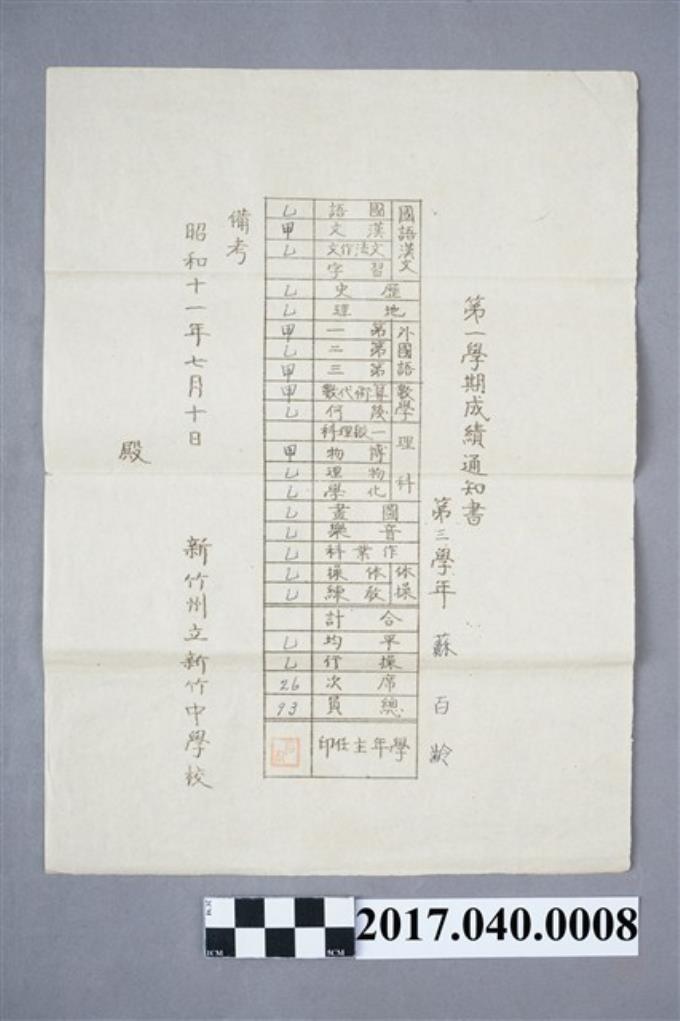 第一學期成績通知書
第三學年 蘇百齡
國語漢文
國語 乙
漢文 甲
文法作文 乙
習字
歷史 乙
地理 乙
外國語
第一 甲
第二 乙
第三 甲
數學
算術代數 甲
幾何 乙
理科
一般理科
博物 甲
物理 乙
化學 乙
圖畫 乙
音樂 乙
作業科 乙
体操
体操 乙
教練 乙
合計
平均 乙
操行 乙
席次 26
總員 93
學年主任印
備考
昭和十一年七月十日
新竹州立新竹中學校
殿
1CM 5CM
2017.040.0008